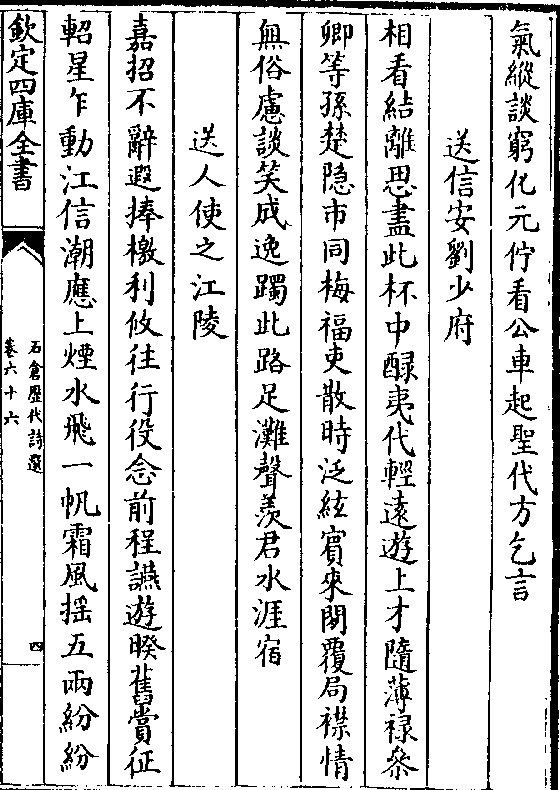 氣縱談窮化元佇看公車起聖代方乞言
送信安劉少府
相看結離思盡此杯中醁夷代輕遠遊上才隨薄禄叅
卿等孫楚隐市同梅福吏散時泛絃賔來閒覆局襟情
無俗慮談笑成逸躅此路足灘聲羨君水涯宿
送人使之江陵
嘉招不辭遐捧檄利攸往行役念前程讌遊暌舊賞征
軺星乍動江信潮應上煙水飛一帆霜風揺五兩紛紛
欽定四庫全書
石倉歴代詩選
卷六十六
四